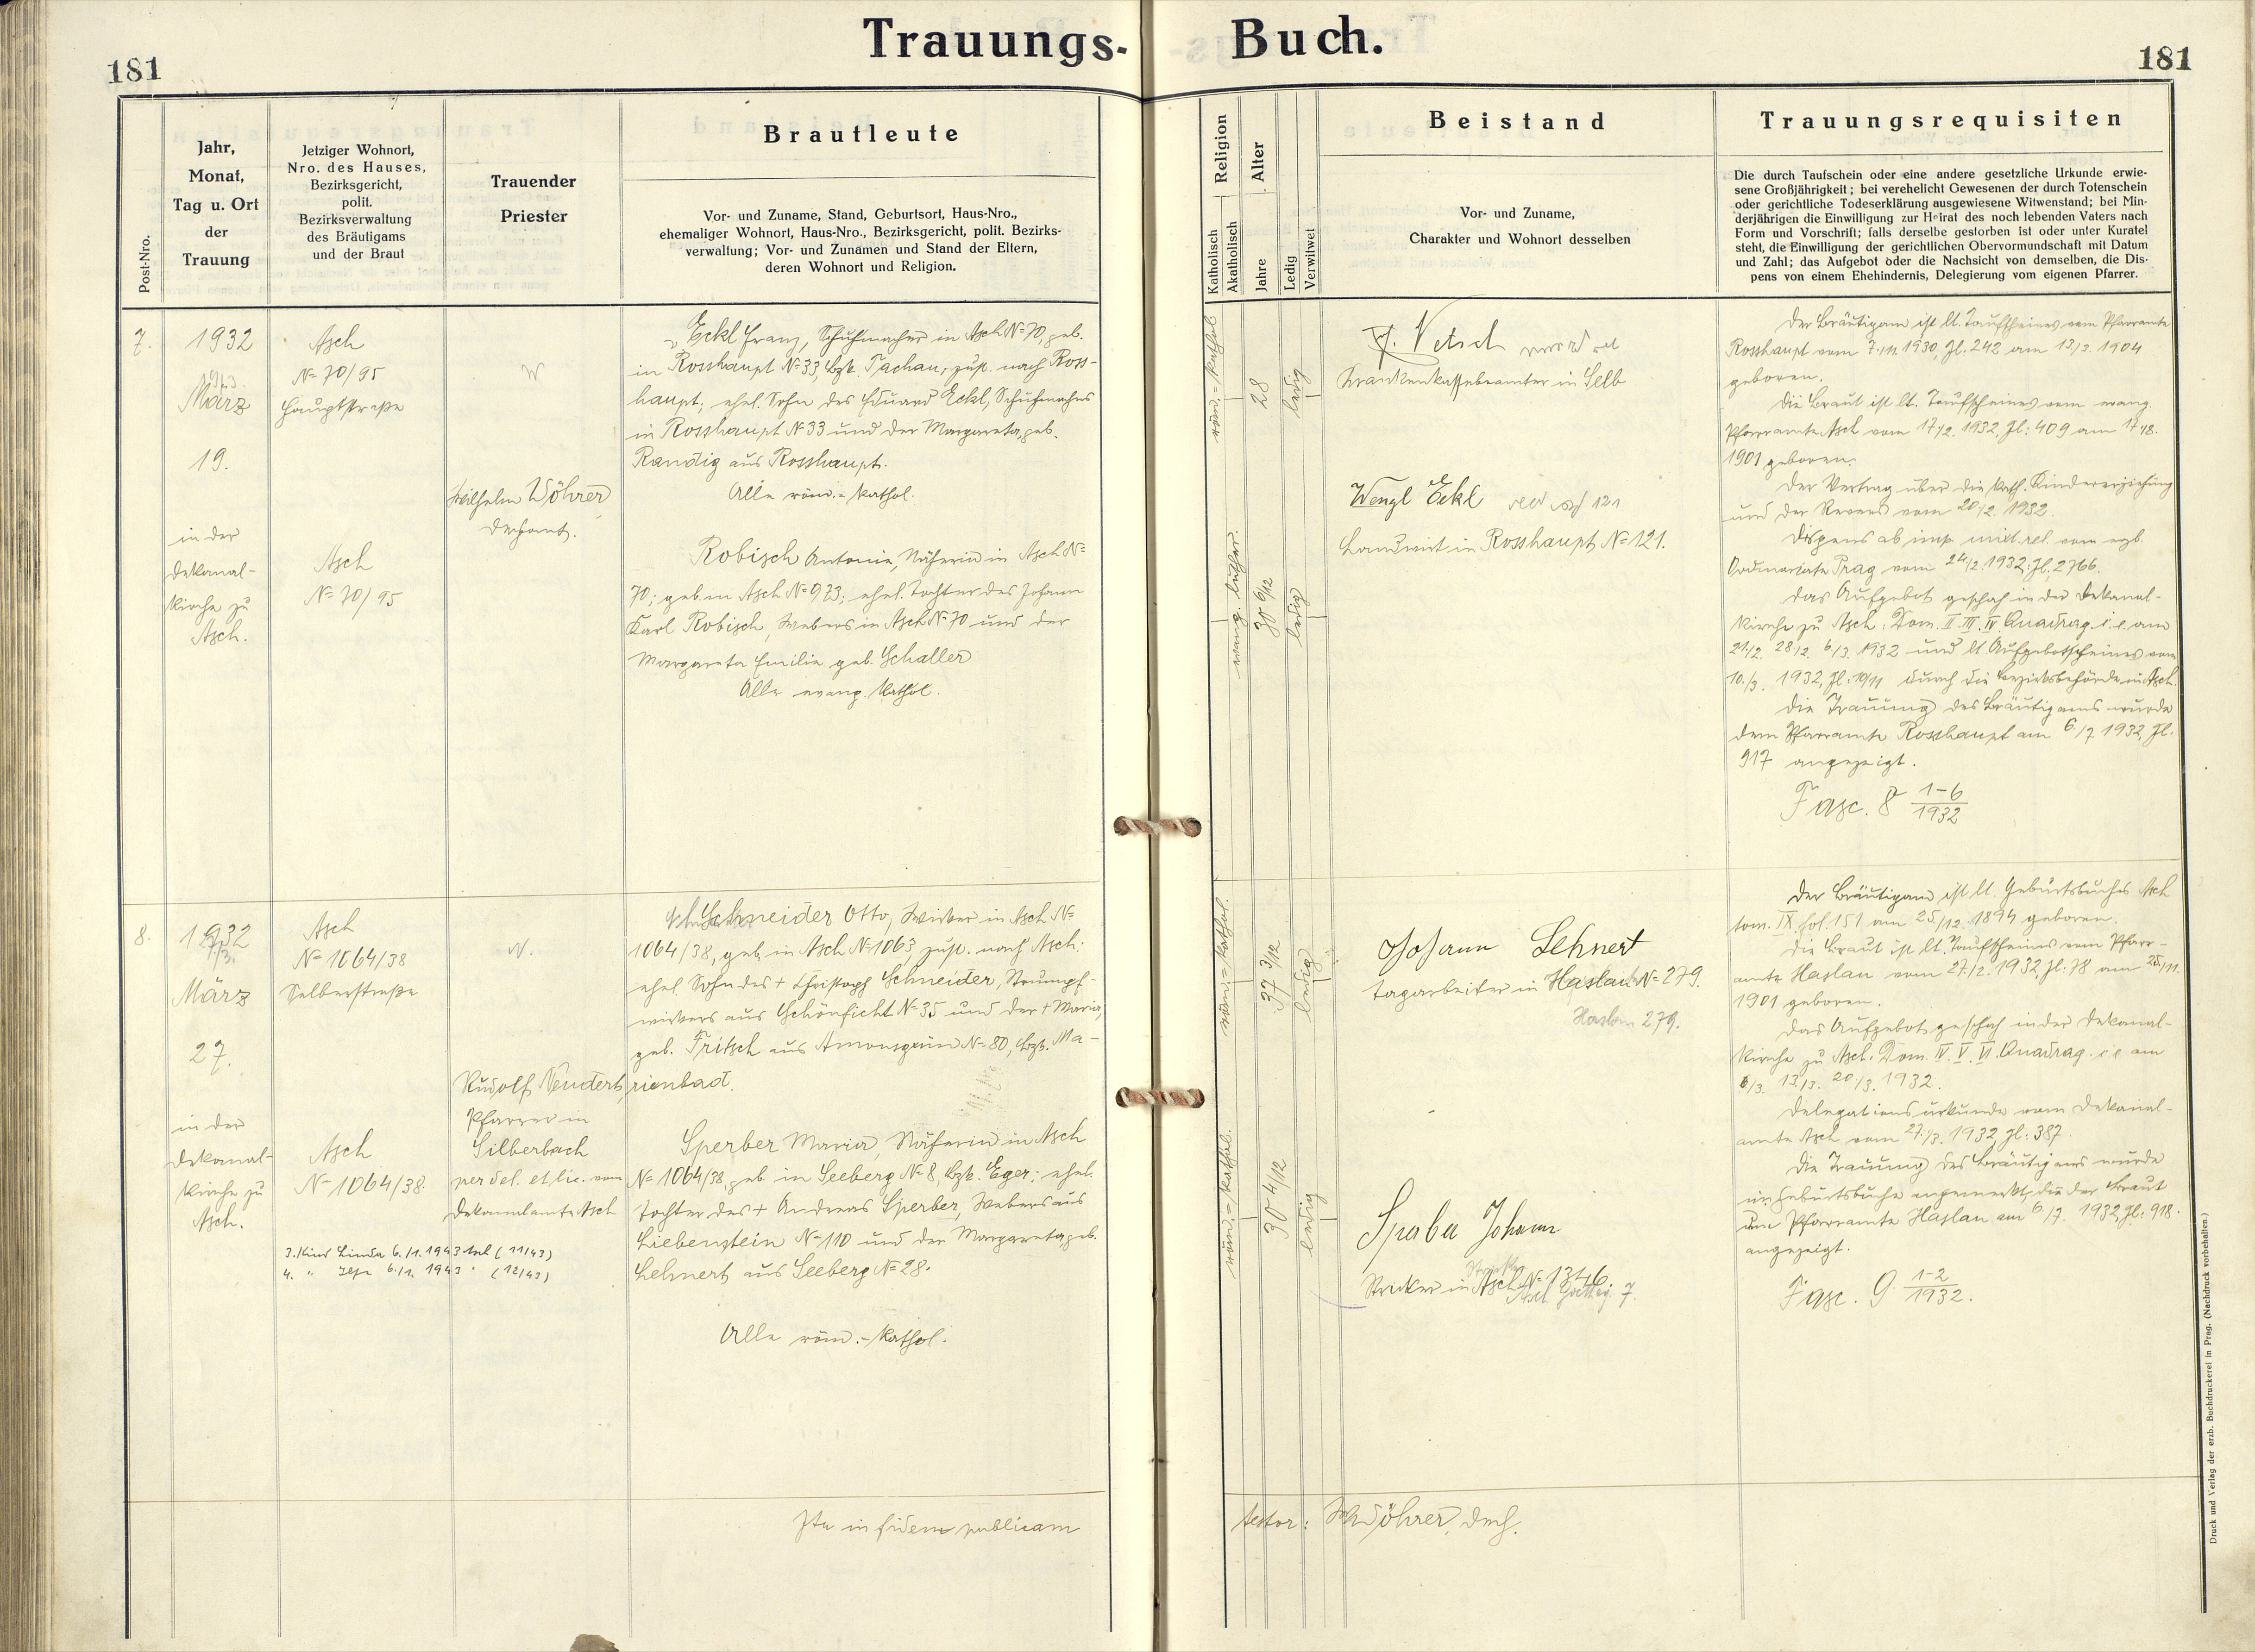 Trauungs-
Buch.
181
181
Post-Nro.
Jahr,
Monat,
Tag u. Ort
der
Trauung
Jetziger Wohnort,
Nro. des Hauses,
Bezirksgericht,
polit.
Bezirksverwaltung
des Bräutigams
und der Braut
Trauender
Priester
Brautleute
Vor- und Zuname, Stand, Geburtsort, Haus-Nro.,
ehemaliger Wohnort, Haus-Nro., Bezirksgericht, polit. Bezirks-
verwaltung; Vor- und Zunamen und Stand der Eltern,
deren Wohnort und Religion.
Religion
Katholisch
Akatholisch
Alter
Jahre
Ledig
Verwitwet
Beistand
Vor- und Zuname,
Charakter und Wohnort desselben
Trauungsrequisiten
Die durch Taufschein oder eine andere gesetzliche Urkunde erwie-
sene Großjährigkeit; bei verehelicht Gewesenen der durch Totenschein
oder gerichtliche Todeserklärung ausgewiesene Witwenstand; bei Min-
derjährigen die Einwilligung zur Heirat des noch lebenden Vaters nach
Form und Vorschrift; falls derselbe gestorben ist oder unter Kuratel
steht, die Einwilligung der gerichtlichen Obervormundschaft mit Datum
und Zahl; das Aufgebot oder die Nachsicht von demselben, die Dis-
pens von einem Ehehindernis, Delegierung vom eigenen Pfarrer.
7.
1932
März
19.
in der
Dekanal-
kirche zu
Asch.
Asch
N= 70/95
Hauptstraße
Asch
N= 70/95
W
Wilhelm Wöhrer,
Dechant.
Eckl Franz, Schuhmacher in Asch N= 70, geb.
in Rosshaupt N= 33, Bzk. Tachau; zust. nach Ross-
haupt; ehel. Sohn des Eduard Eckl, Schuhmachers
in Rosshaupt N= 33 und der Margareta, geb.
Randig aus Rosshaupt.
Alle röm.-kathol.
Robisch Antonie, Näherin in Asch N=
70; geb. in Asch N= 923; ehel. Tochter des Johann
Karl Robisch, Webers in Asch N= 70 und der
Margareta Emilie geb. Schaller
Alle evang. kathol.
röm.-kathol
28
ledig
evang. luther.
30 6/12
ledig
F. Netsch
Krankenkassebeamter in Selb
Wenzl Eckl
Landwirt in Rosshaupt N= 121.
Der Bräutigam ist lt. Taufscheines vom Pfarramte
Rosshaupt vom 7./11. 1930, Zl. 242 am 13/3. 1904
geboren.
Die Braut ist lt. Taufscheines vom evang.
Pfarramte Asch vom 17/2. 1932, Zl: 409 am 17/8.
1901 geboren.
Der Vertrag über die kath. Kindererziehung
und der Revers vom 20/2. 1932.
Dispens ab imp. mixt. rel. vom erzb.
Ordinariate Prag vom 24/2. 1932, Zl. 2766.
Das Aufgebot geschah in der Dekanal-
kirche zu Asch: Dom. II. III. IV Quadrag. i. e. am
21/2. 28/2. 6/3. 1932 und lt Aufgebotscheines vom
10./3. 1932, Zl: 19/11 durch die Bezirksbehörde in Asch.
Die Trauung des Bräutigams wurde
dem Pfarramte Rosshaupt am 6./7. 1932, Zl.
917 angezeigt.
Fasc. 8 1-6/1932
8.
1932
März
27.
in der
Dekanal-
kirche zu
Asch.
Asch
N= 1064/38
Selberstraße
Asch
N= 1064/38.
W.
Rudolf Neudert,
Pfarrer in
Silberbach
per del. et lic. vom
Dekanalamte Asch
3. Kind Linda 6./1. 1943 (11/43)
4. " 6./1. 1943 " (12/43)
Schneider Otto, Wirker in Asch N=
1064/38, geb. in Asch N= 1063, zust. nach Asch;
ehel. Sohn des + Christoph Schneider, Strumpf-
wirkers aus Schönficht N= 35 und der + Maria,
geb. Fritsch aus Amonsgrün N= 80, Bzk. Ma-
rienbad.
Sperber Maria, Näherin in Asch
N= 1064/38, geb. in Seeberg N= 8, Bzk. Eger; ehel.
Tochter des + Andreas Sperber, Webers aus
Liebenstein N= 110 und der Margareta, geb.
Lehnert aus Seeberg N= 28.
Alle röm.-kathol.
röm.-kathol.
37 3/12
ledig
röm.-kathol.
30 4/12
ledig
Johann Lehnert
Tagarbeiter in Haslau N= 279.
Haslau 279.
Sperber Johann
Stricker in Asch N= 1346.
Der Bräutigam ist lt Geburtsbuches Asch
tom. IX. fol. 151 am 25/12. 1894 geboren.
Die Braut ist lt. Taufscheines vom Pfarr-
amte Haslau vom 27./2. 1932, Zl: 78 am 25/11.
1901 geboren.
Das Aufgebot geschah in der Dekanal-
kirche zu Asch: Dom. IV. V. VI. Quadrag. i e am
6/3. 13./3. 20/3. 1932.
Delegationsurkunde vom Dekanal-
amte Asch vom 27./3. 1932, Zl: 387.
Die Trauung des Bräutigams wurde
im Geburtsbuche angemerkt, die der Braut
am Pfarramte Haslau am 6./7. 1932, Zl: 918.
angezeigt.
Fasc. 9 1-2/1932.
Ita in fidem publicam
testor: W. Wöhrer, Dech.
Druck und Verlag der erzb. Buchdruckerei in Prag. (Nachdruck vorbehalten.)